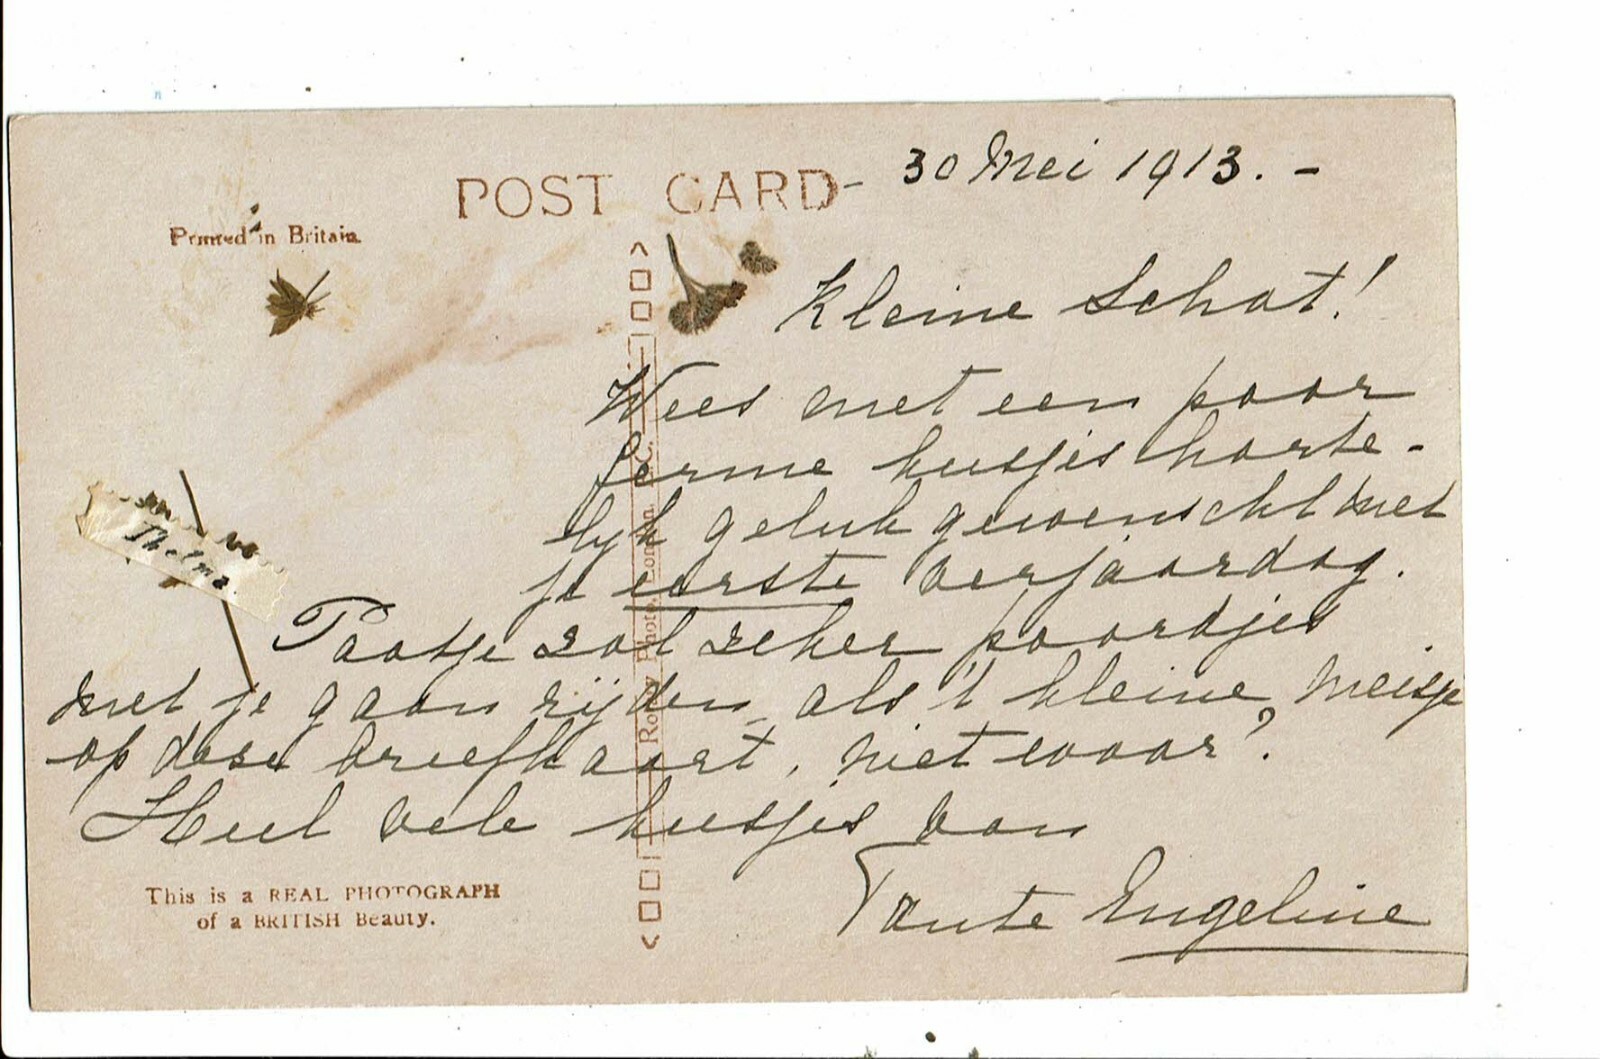 POST CARD
- 30 Mei 1913. -
Printed in Britain
Kleine Schat!
Wees met een paar
ferme kusjes harte-
lijk geluk gewenscht met
je eerste verjaardag.
Thelma.
Paatje zal zeker paardjes
met je gaan rijden als 't kleine meisje
op deze briefkaart, niet waar?
Heel vele kusjes van
Tante Engeline
This is a REAL PHOTOGRAPH
of a BRITISH Beauty.
Rotary Photo, London, E.C.